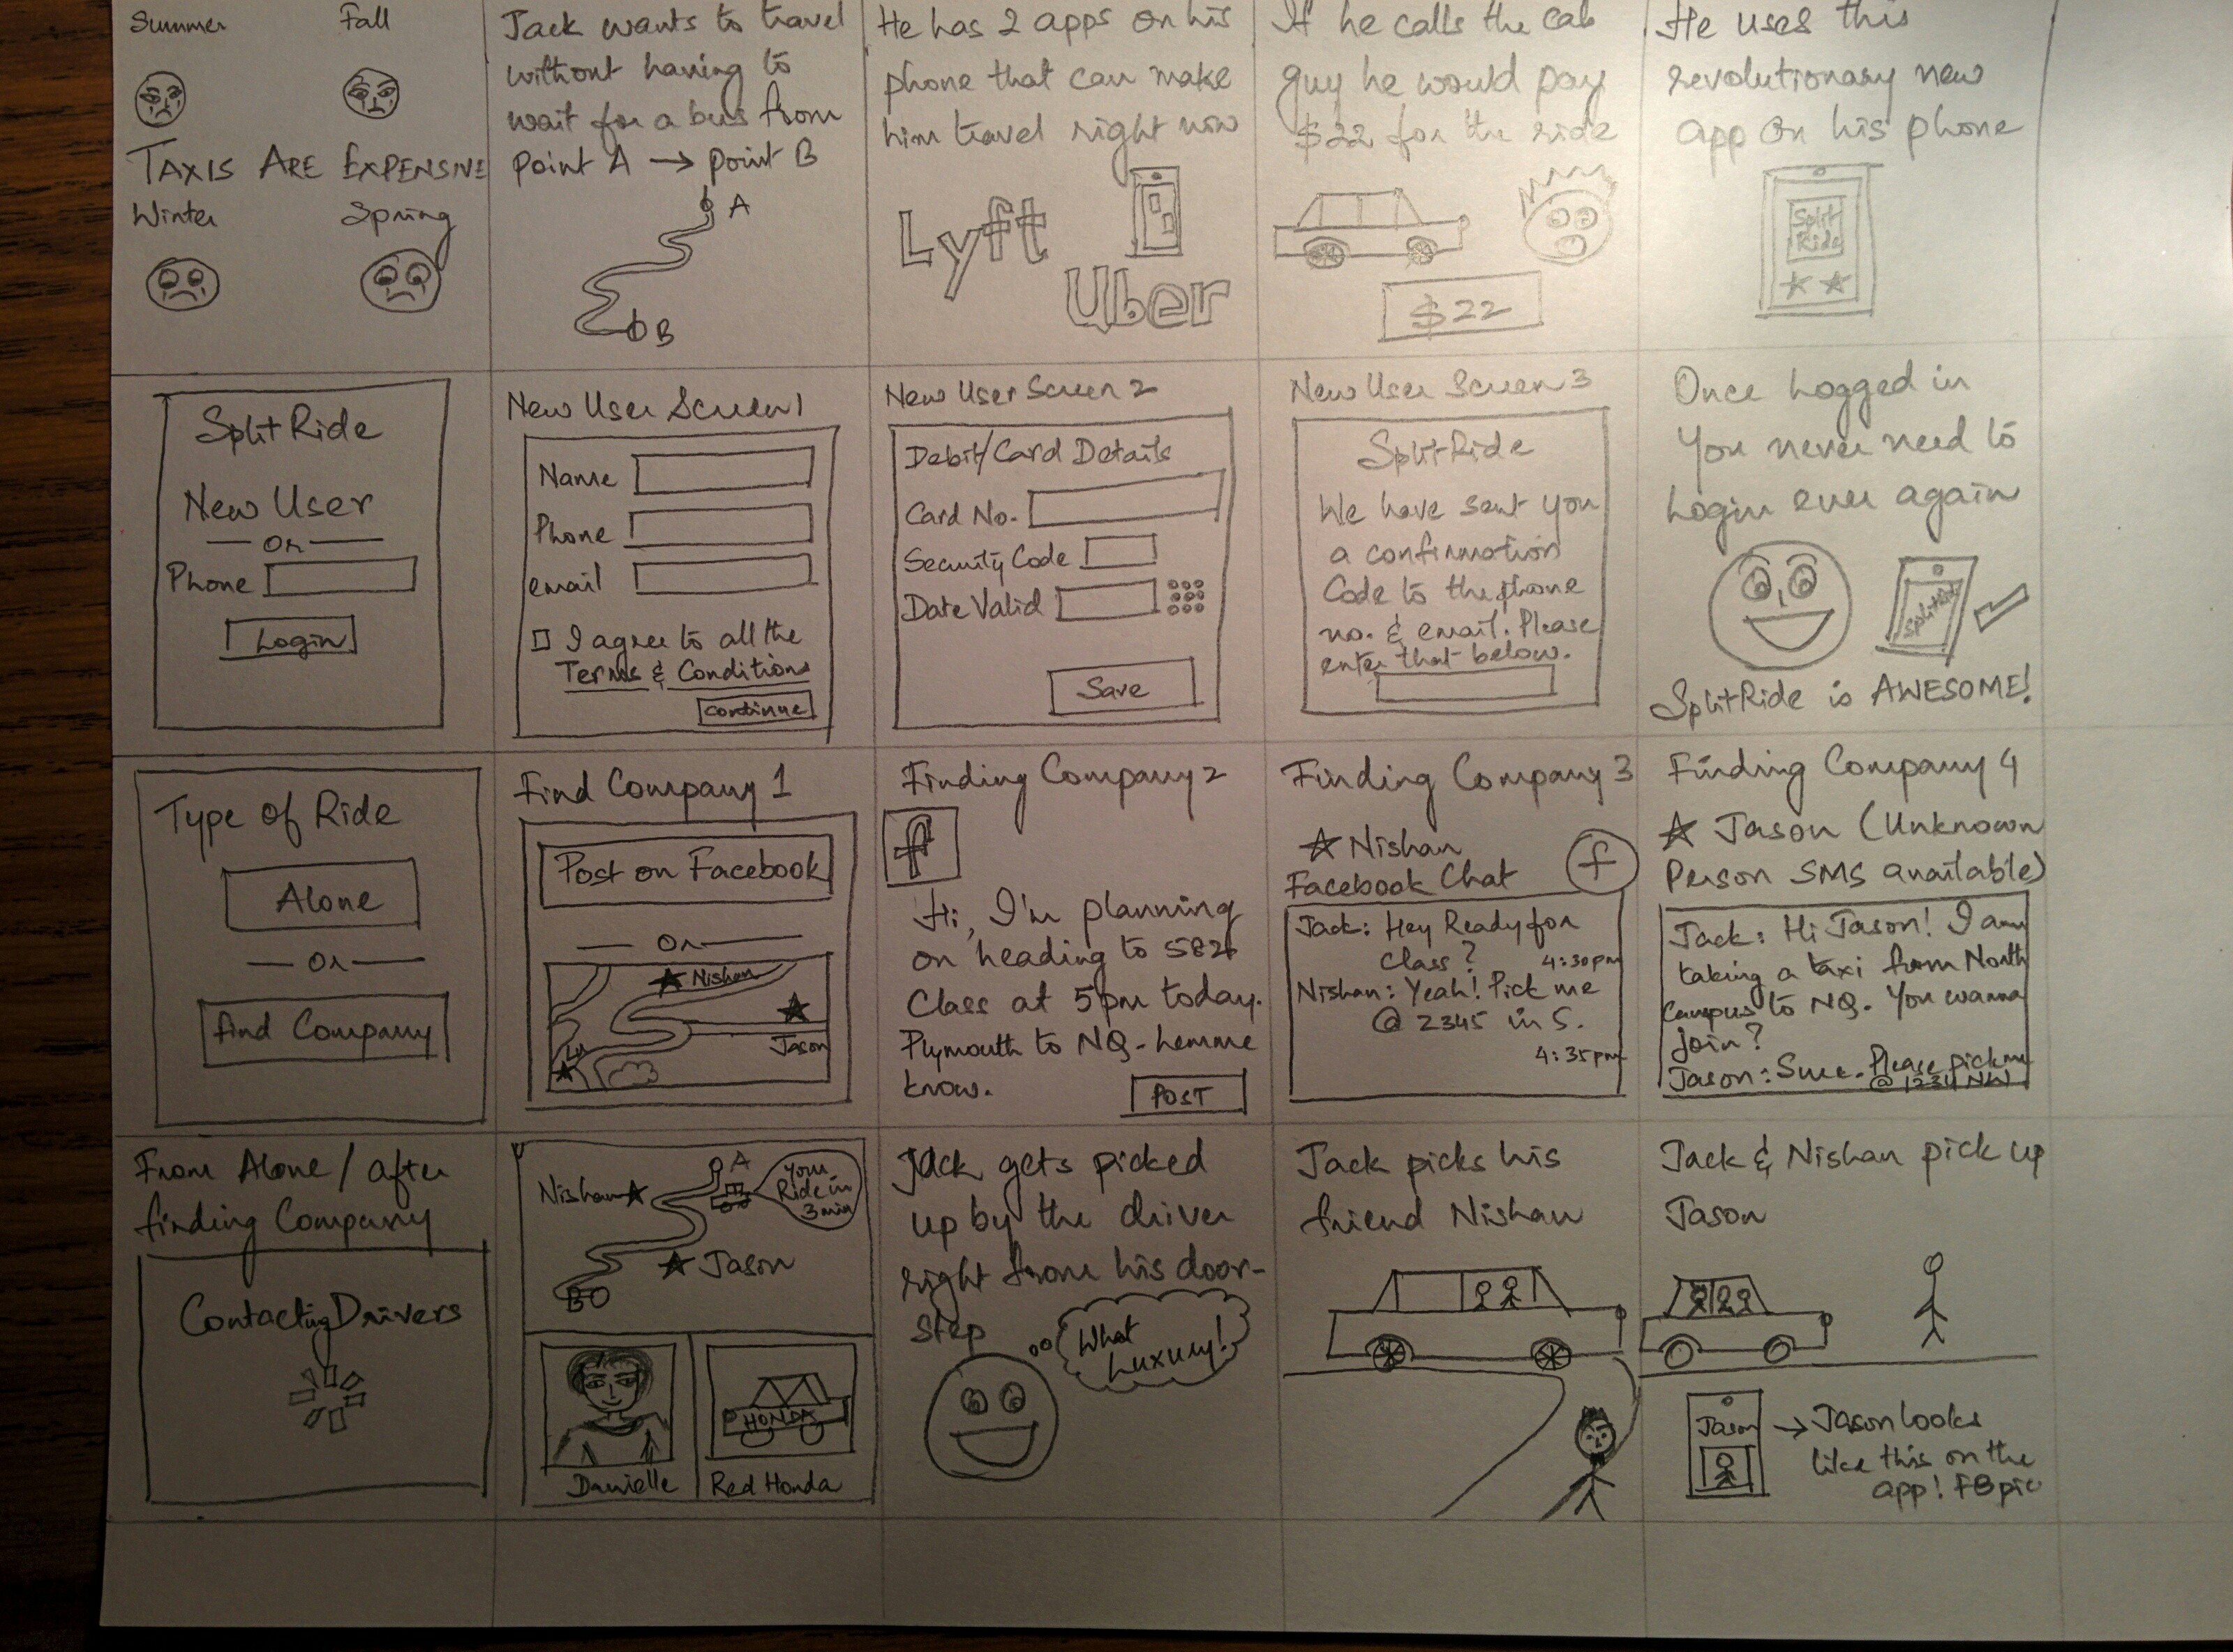 Summer Fall
TAXIS ARE EXPENSIVE
Winter Spring
Jack wants to travel
without having to
wait for a bus from
point A → point B
A
B
He has 2 apps on his
phone that can make
him travel right now
Lyft
Uber
If he calls the cab
guy he would pay
$22 for the ride
$22
He uses this
revolutionary new
app on his phone
Split
Ride
SplitRide
New User
Or
Phone
Login
New User Screen 1
Name
Phone
email
I agree to all the
Terms & Conditions
continue
New User Screen 2
Debit/Card Details
Card No.
Security Code
Date Valid
Save
New User Screen 3
SplitRide
We have sent you
a confirmation
Code to the phone
no. & email. Please
enter that below.
Once logged in
You never need to
Login ever again
SplitRide is AWESOME!
Type of Ride
Alone
Or
find Company
Find Company 1
Post on Facebook
Or
Nishan
Jason
Finding Company 2
f
Hi, I'm planning
on heading to 582
Class at 5pm today.
Plymouth to NQ - lemme
know.
POST
Finding Company 3
Nishan
Facebook Chat
f
Jack: Hey Ready for
Class? 4:30pm
Nishan: Yeah! Pick me
@ 2345 in S.
4:35pm
Finding Company 4
Jason (Unknown
Person SMS available)
Jack: Hi Jason! I am
taking a taxi from North
Campus to NQ. You wanna
join?
Jason: Sure. Please pick me
@ 1234 NW
From Alone / after
finding Company
Contacting Drivers
Nishan
A
Your
Ride in
3 min
Jason
B
HONDA
Danielle
Red Honda
Jack gets picked
up by the driver
right from his door-
step
What
Luxury!
Jack picks his
friend Nishan
Jack & Nishan pick up
Jason
Jason → Jason looks
like this on the
app! FB pic